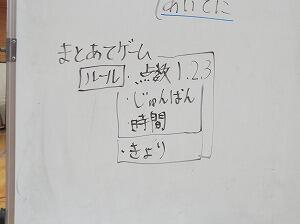 あいてに
まとあてゲーム
ルール ・点数 1.2.3
・じゅんばん
・時間
・きょり